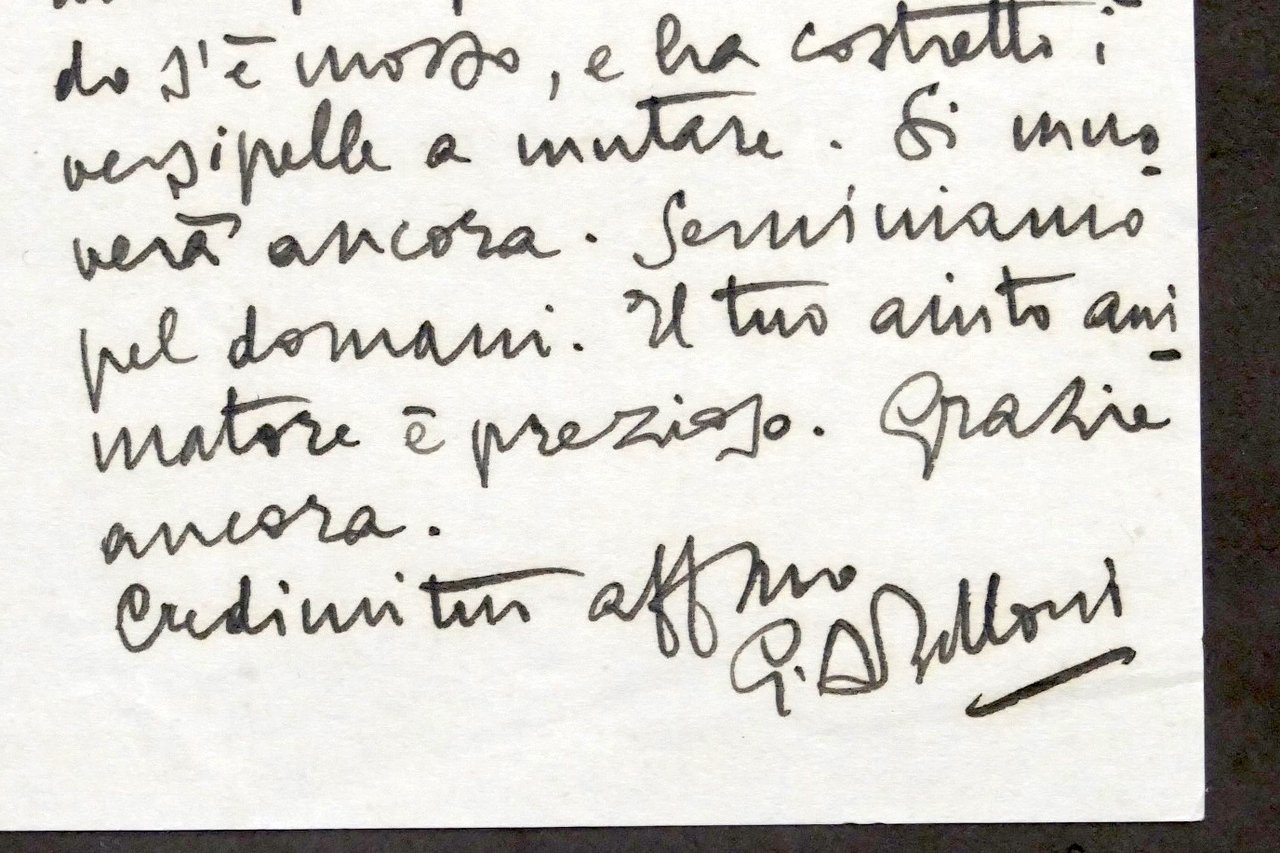 do s'è mosso, e ha costretti i
versipelle a mutare. Si muo-
verà ancora. Seminiamo
pel domani. Il tuo aiuto ani-
matore è prezioso. Grazie
ancora.
Credimi tuo aff mo
G. A. Belloni